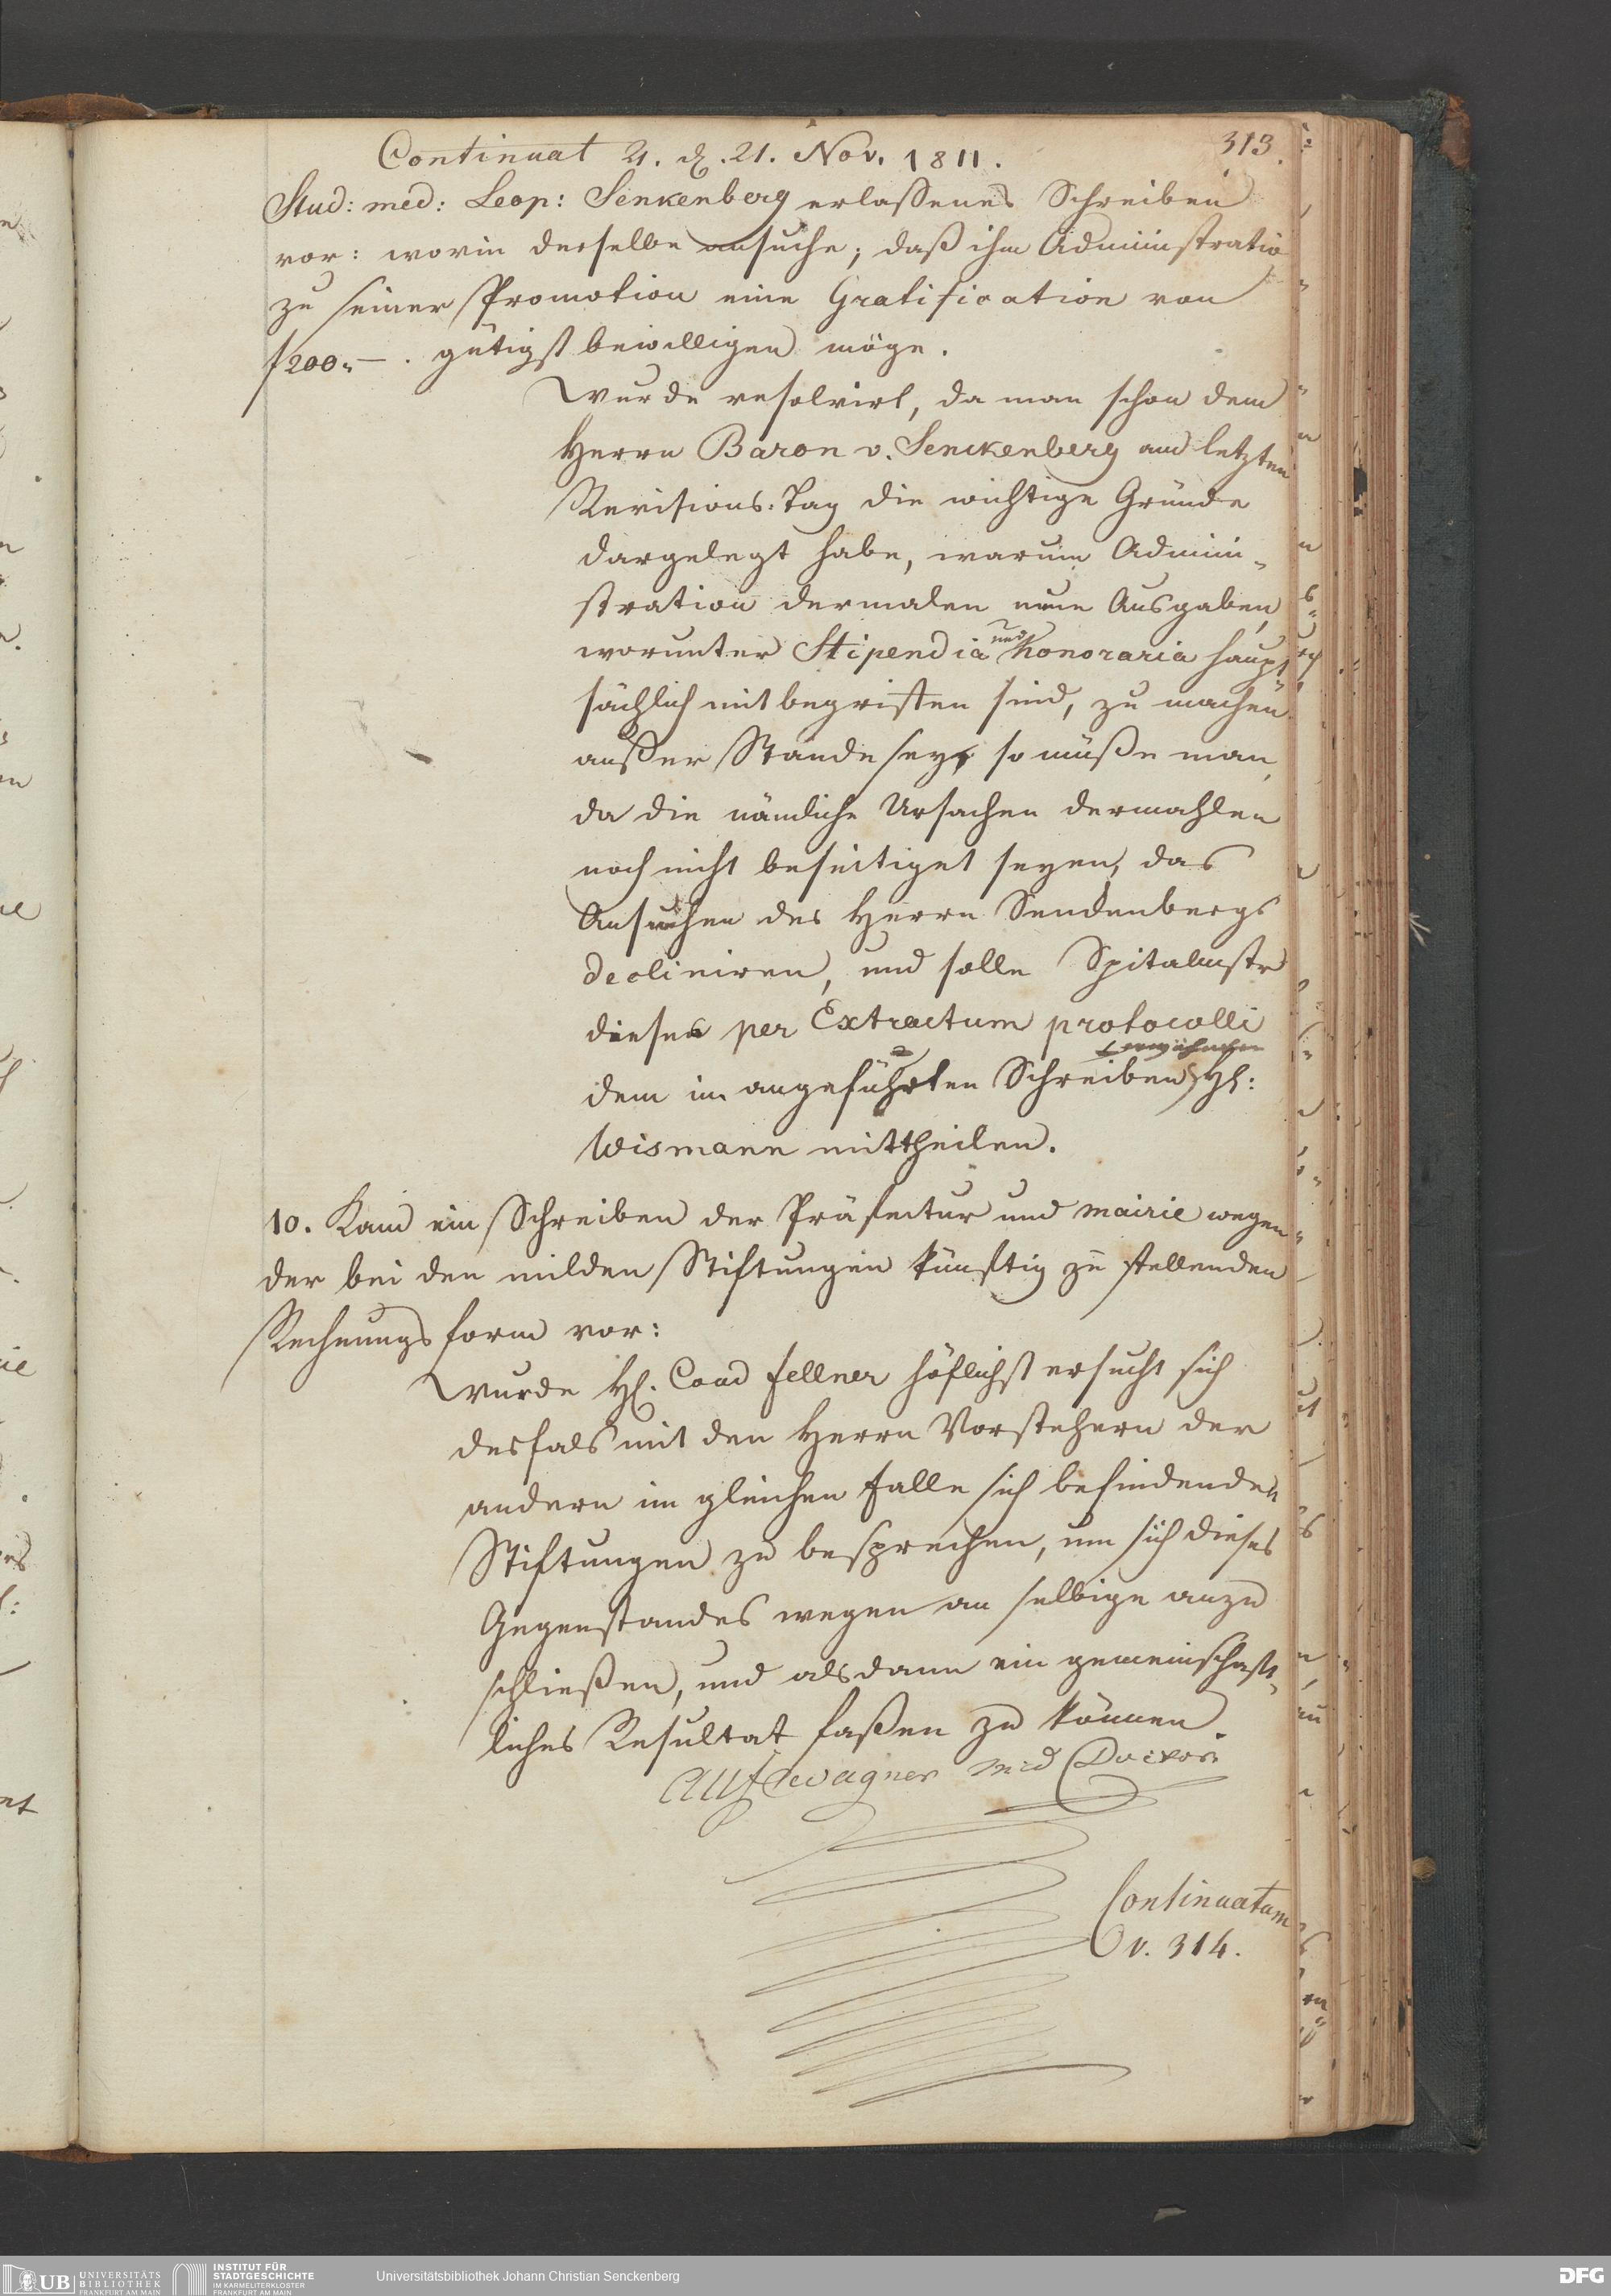 313.
Continuat 21. d. 21. Nov. 1811.
Stud: med: Leop: Senkenberg erlassenes Schreiben
vor: worin derselbe ansuche, daß ihm Administratio
zu seiner Promotion eine Gratification von
f 200.— . gütigst bewilligen möge.
Wurde resolvirt, da man schon dem
Herrn Baron v. Senckenberg am letzten
Revisions-Tag die wichtige Gründe
dargelegt habe, warum Admini-
stration dermalen neue Ausgaben,
worunter Stipendia und Honoraria haupt-
sächlich mit begriffen sind, zu machen
außer Stande sey, so müße man,
da die nämliche Ursachen dermahlen
noch nicht beseitiget seyen, das
Ansuchen des Herrn Senckenbergs
decliniren, und solle Spitalmstr
dieses per Extractum protocolli
dem im angeführten Schreiben H:
Wismann mittheilen.
10. Kam ein Schreiben der Präfectur und mairie wegen
der bei den milden Stiftungen künftig zu stellenden
Rechnungsform vor:
Wurde H. Coad fellner höflichst ersucht sich
desfals mit den Herrn Vorstehern der
andern im gleichen Falle sich befindenden
Stiftungen zu besprechen, um sich dieses
Gegenstandes wegen an selbige anzu
schließen, und alsdann ein gemeinschaft-
liches Resultat faßen zu können.
Continuatum
v. 314.
UB UNIVERSITÄTS
BIBLIOTHEK
FRANKFURT AM MAIN
INSTITUT FÜR
STADTGESCHICHTE
IM KARMELITERKLOSTER
FRANKFURT AM MAIN
Universitätsbibliothek Johann Christian Senckenberg
DFG